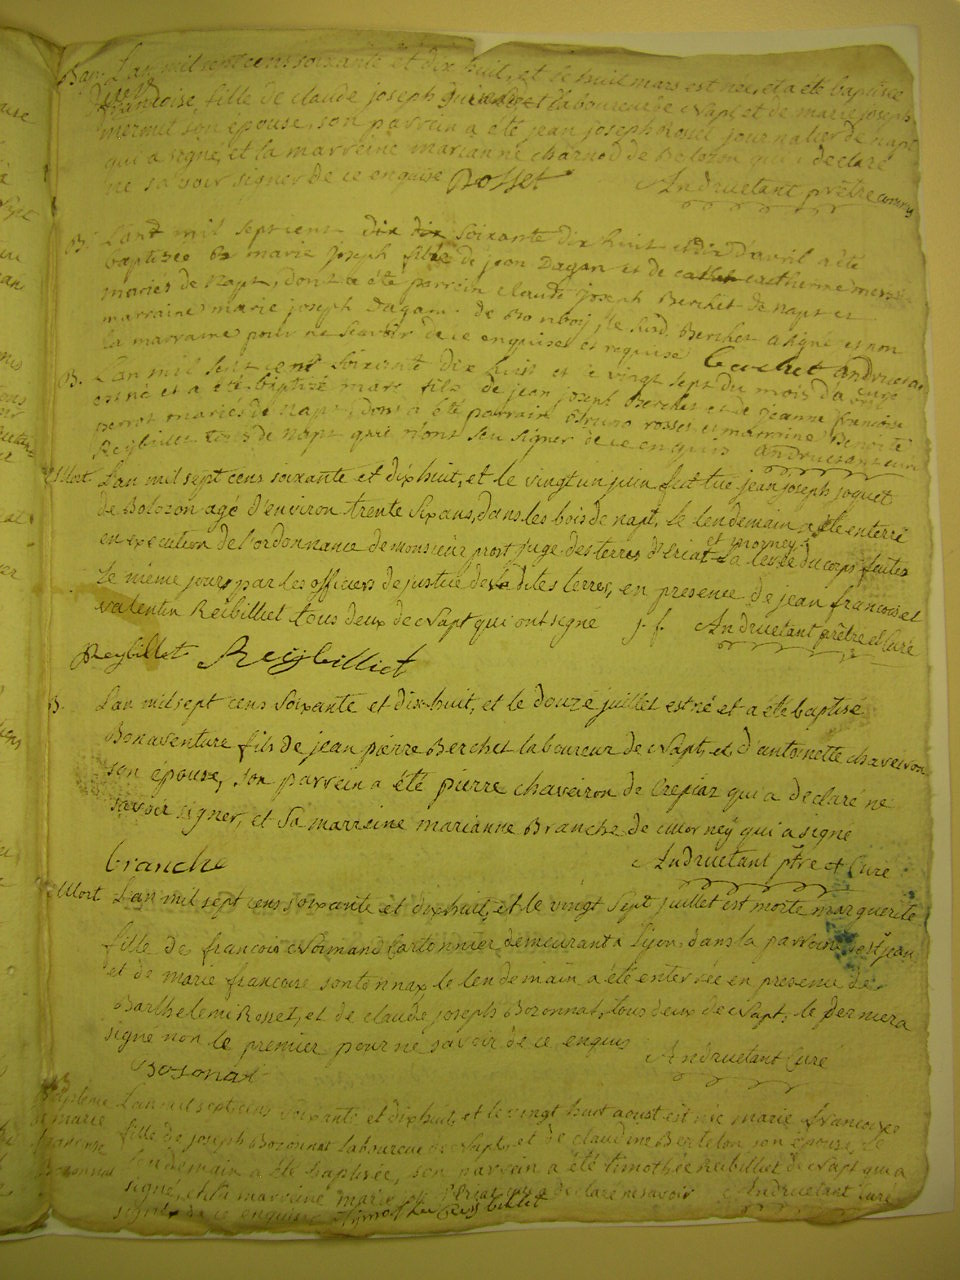 Bap. L'an mil sept cens soixante et dix huit, et le huit mars est née, et a été baptisée
françoise, fille de claude joseph laboureur de Napt et de marie joseph
mermet son épouse, son parrein a été jean joseph Rosset journalier de napt
qui a signé, et la marreine marianne charnod de Bolozon qui a declaré
ne savoir signer de ce enquise Rosset Andruetant prêtre curé
B. L'an mil sept cent soixante dix huit et dix d'avril a été
baptisée marie joseph fille de jean Dagan et de catherine
mariés de Napt, dont a été parrein claude joseph Berchet de napt et
marraine marie joseph Dagan de Bonboy, le susd. Berchet a signé et non
la marraine pour ne scavoir de ce enquise et requise Berchet Andruetan
B. L'an mil sept cent soixante dix huit et le vingt sept du mois d'avril curé
est né et a été baptisé marc fils de jean joseph Berchet et de jeanne françoise
perret mariés de Napt, dont a été parrain Bruno rosset et marraine Benoite
Reybillet tous de Napt qui n'ont seu signer de ce enquis Andruetant curé
Mort L'an mil sept cens soixante et dix huit, et le vingt un juin fut tué jean joseph joquet
de Bolozon agé d'environ trente six ans, dans les bois de napt, le lendemain a été enterré
et mornay
en execution de l'ordonnance de monsieur prost juge des terres d'Heriat la levée du corps faites
le même jour par les officiers de justice des dites terres, en presence de jean françois et
valentin Reibilliet tous deux de Napt qui ont signé j. f. Andruetant prêtre et Curé
Reybillet Reybilliet
B. L'an mil sept cens soixante et dix-huit, et le douze juillet est né et a été baptisé
Bonaventure fils de jean pierre Berchet laboureur de Napt, et d'antoinette chaveiron
son épouse, son parrein a été pierre chaveiron de Crepiaz qui a declaré ne
savoir signer, et sa marreine marianne Branche de morney qui a signé
branche Andruetant ptre et Curé
Mort L'an mil sept cens soixante et dix huit, et le vingt sept juillet est morte marguerite
fille de francois Normand Cartonnier demeurant a Lyon, dans la parroisse de st jean
et de marie francoise sontonnax, le lendemain a été enterrée en presence de
Barthelemi Rosset, et de claude joseph Bozonnat, tous deux de Napt, le dernier a
signé non le premier pour ne savoir de ce enquis Andruetant Curé
Bosonat
Baptême L'an mil sept cens soixante et dix huit, et le vingt huit aoust est née marie francoise
de marie fille de joseph Bozonnat laboureur de Napt, et de claudine Berlelon son épouse, le
francoise lendemain a été baptisée, son parrein a été timothée Reibilliet de Napt qui a
Bozonnat signé, et la marreine marie qui a declaré ne savoir Andruetant Curé
signer de ce enquise